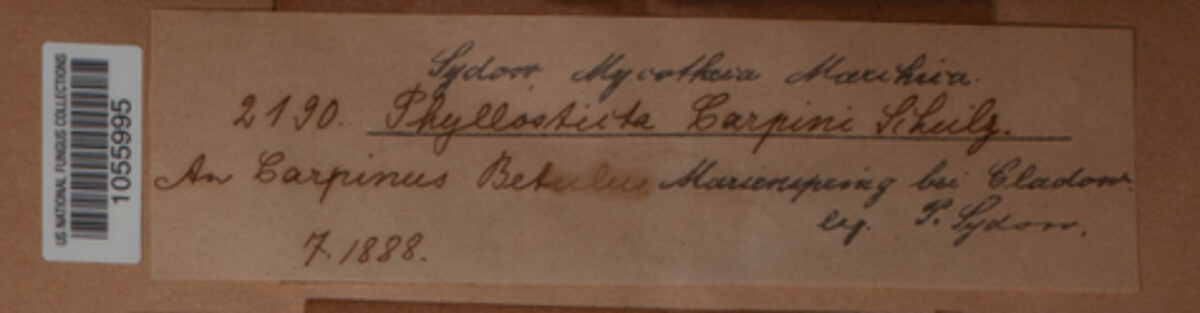 US NATIONAL FUNGUS COLLECTIONS
1055995
Sydow Mycotheca Marchica.
2190. Phyllosticta Carpini Schulz.
An Carpinus Betulus Marienspring bei Cladow.
leg. P. Sydow.
7. 1888.